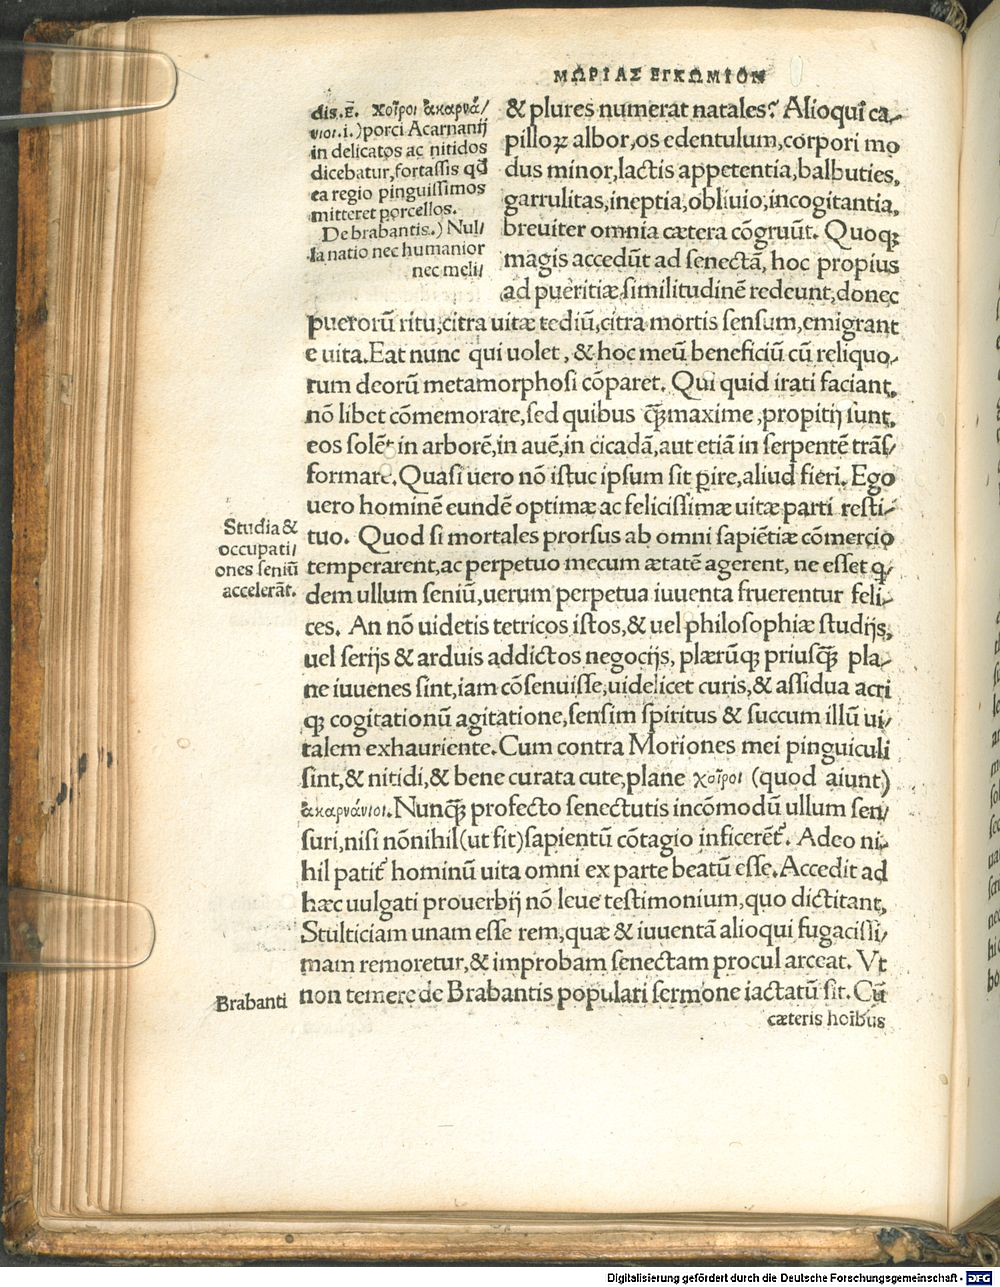 ΜΩΡΙΑΣ ΕΓΚΩΜΙΟΝ
dis.E̅. χοῖροι ἀκαρνά/
νιοι.i.) porci Acarnanij
in delicatos ac nitidos
dicebatur, fortassis qđ
ea regio pinguissimos
mitteret porcellos.
De brabantis.) Nul/
la natio nec humanior
nec meli/
& plures numerat natales? Alioqui ca-
pilloꝝ albor, os edentulum, corpori mo
dus minor, lactis appetentia, balbuties,
garrulitas, ineptia, obliuio, incogitantia,
breuiter omnia cætera cõgruũt. Quoqꝫ
magis accedũt ad senectã, hoc propius
ad pueritiæ similitudinẽ redeunt, donec
puerorũ ritu, citra uitæ tediũ, citra mortis sensum, emigrant
e uita. Eat nunc qui uolet, & hoc meũ beneficiũ cũ reliquo-
rum deorũ metamorphosi cõparet. Qui quid irati faciant,
nõ libet cõmemorare, sed quibus ꝙ̃maxime, propitij sunt,
eos solẽt in arborẽ, in auẽ, in cicadã, aut etiã in serpentẽ trãs/
formare. Quasi uero nõ istuc ipsum sit ꝑire, aliud fieri. Ego
uero hominẽ eundẽ optimæ ac felicissimæ uitæ parti resti-
tuo. Quod si mortales prorsus ab omni sapiẽtiæ cõmercio
temperarent, ac perpetuo mecum ætatẽ agerent, ne esset q̃/
dem ullum seniũ, uerum perpetua iuuenta fruerentur feli-
ces. An nõ uidetis tetricos istos, & uel philosophiæ studijs,
uel serijs & arduis addictos negocijs, plærũqꝫ priusꝙ̃ pla-
ne iuuenes sint, iam cõsenuisse, uidelicet curis, & assidua acri
qꝫ cogitationũ agitatione, sensim spiritus & succum illũ ui/
talem exhauriente. Cum contra Moriones mei pinguiculi
sint, & nitidi, & bene curata cute, plane χοῖροι (quod aiunt)
ἀκαρνάνιοι. Nunꝙ̃ profecto senectutis incõmodũ ullum sen/
suri, nisi nõnihil (ut fit) sapientũ cõtagio inficerẽt᷑. Adeo ni-
hil patit᷑ hominũ uita omni ex parte beatũ esse. Accedit ad
hæc uulgati prouerbij nõ leue testimonium, quo dictitant,
Stulticiam unam esse rem, quæ & iuuentã alioqui fugacissi/
mam remoretur, & improbam senectam procul arceat. Vt
non temere de Brabantis populari sermone iactatũ sit. Cũ
cæteris hoĩbus
Studia &
occupati/
ones seniũ
accelerãt.
Brabanti
Digitalisierung gefördert durch die Deutsche Forschungsgemeinschaft - DFG